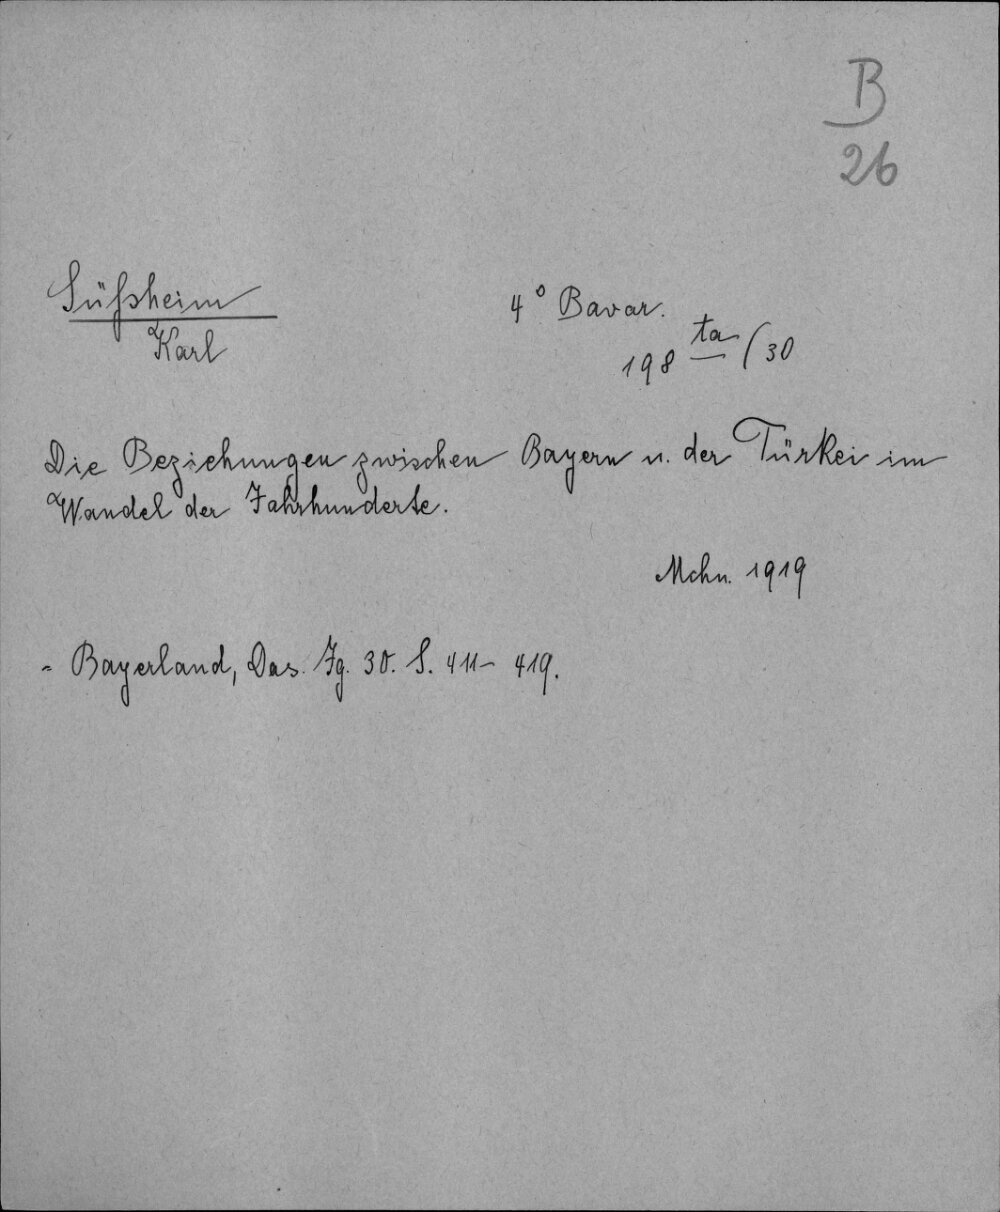 B
26
Süßheim
Karl
4° Bavar.
198 ta/30
Die Beziehungen zwischen Bayern u. der Türkei im
Wandel der Jahrhunderte.
Mchn. 1919
- Bayerland, Das. Jg. 30. S. 411- 419.